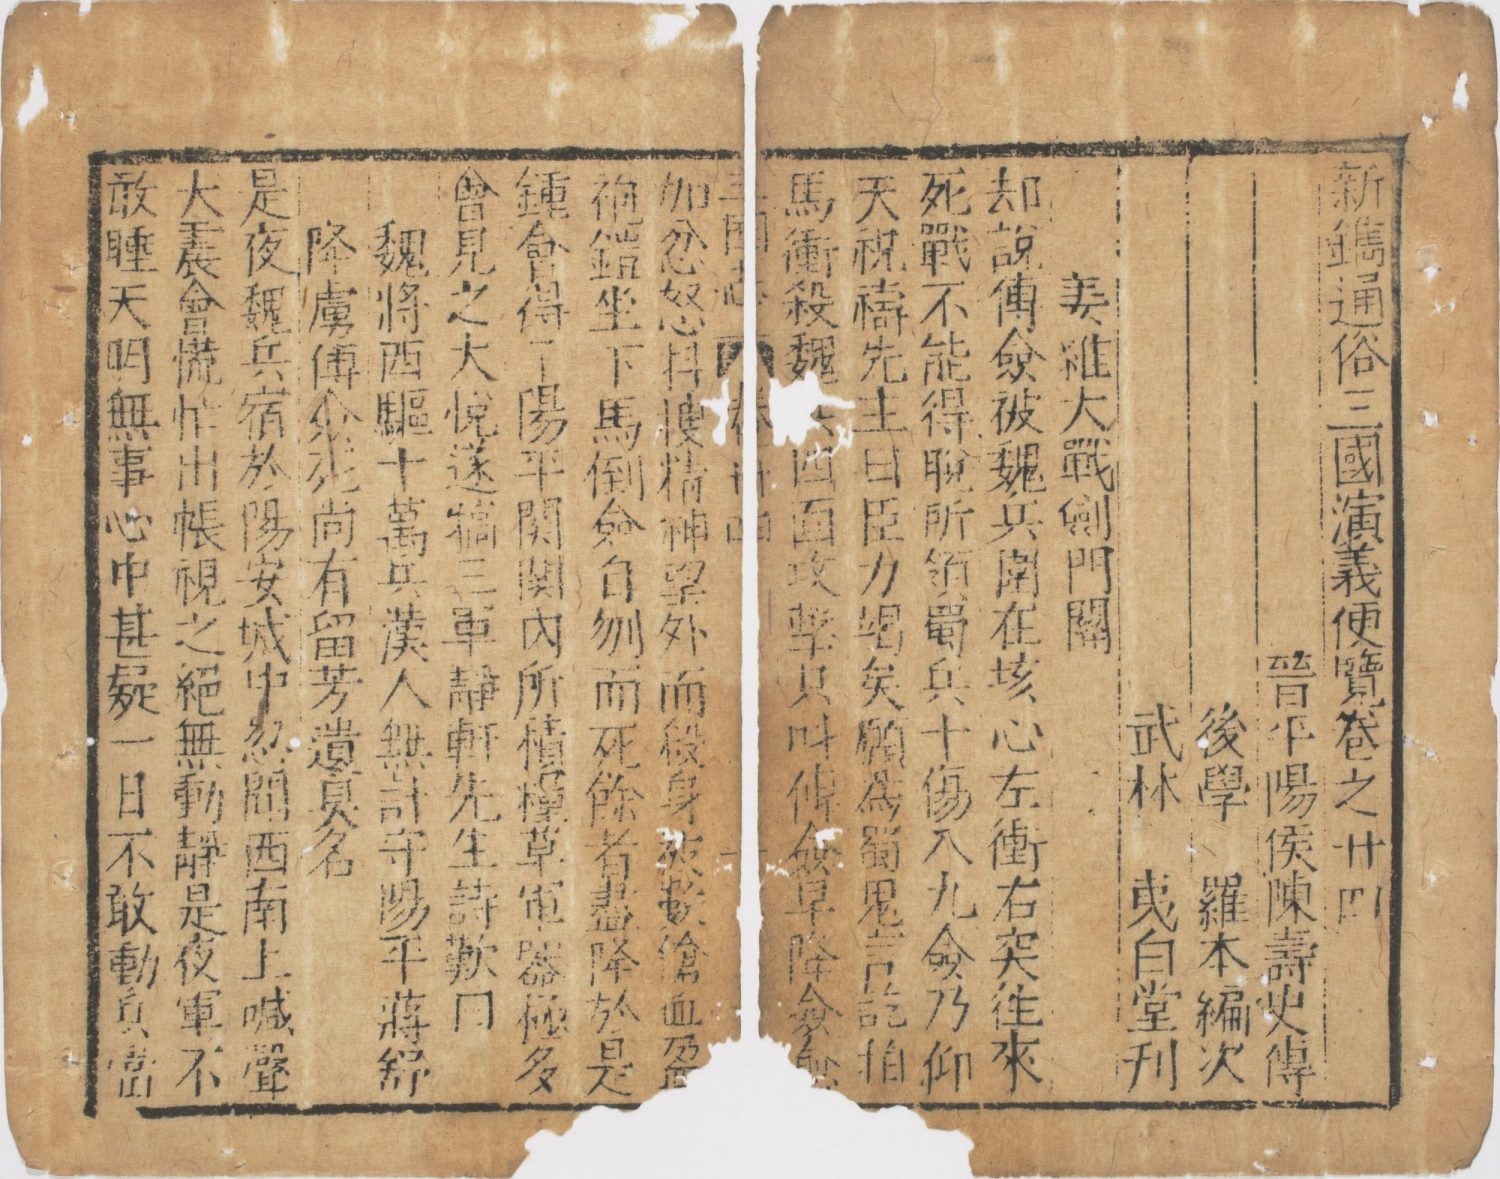 新鐫通俗三國演義便覽卷之廿四
晉平陽侯陳壽史傳
後學 羅本編次
武林 夷白堂刊
姜維大戰劍門關
却說傅僉被魏兵圍在垓心左衝右突往來
死戰不能得脫所領蜀兵十傷八九僉乃仰
天祝禱先主曰臣力竭矣願為蜀鬼言訖拍
馬衝殺魏兵四面攻擊只叫傅僉早降僉愈
三國志 卷廿四 十
加忿怒抖擻精神望外而殺身被數鎗血盈
袍鎧坐下馬倒僉自刎而死餘者盡降於是
鍾會得了陽平関関內所積糧草軍器極多
會見之大悅遂犒三軍靜軒先生詩歎曰
魏將西驅十萬兵漢人無計守陽平蔣舒
降虜傅僉死尚有留芳遺臭名
是夜魏兵宿於陽安城中忽聞西南上喊聲
大震會慌忙出帳視之絕無動靜是夜軍不
敢睡天明無事心中甚疑一日不敢動兵當